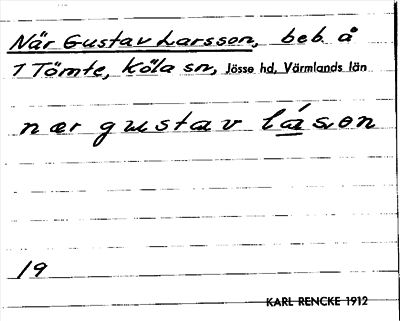 När Gustav Larsson, beb. å
1 Tömte, Köla sn, Jösse hd, Värmlands län
nær gustav lá̱son
19
KARL RENCKE 1912